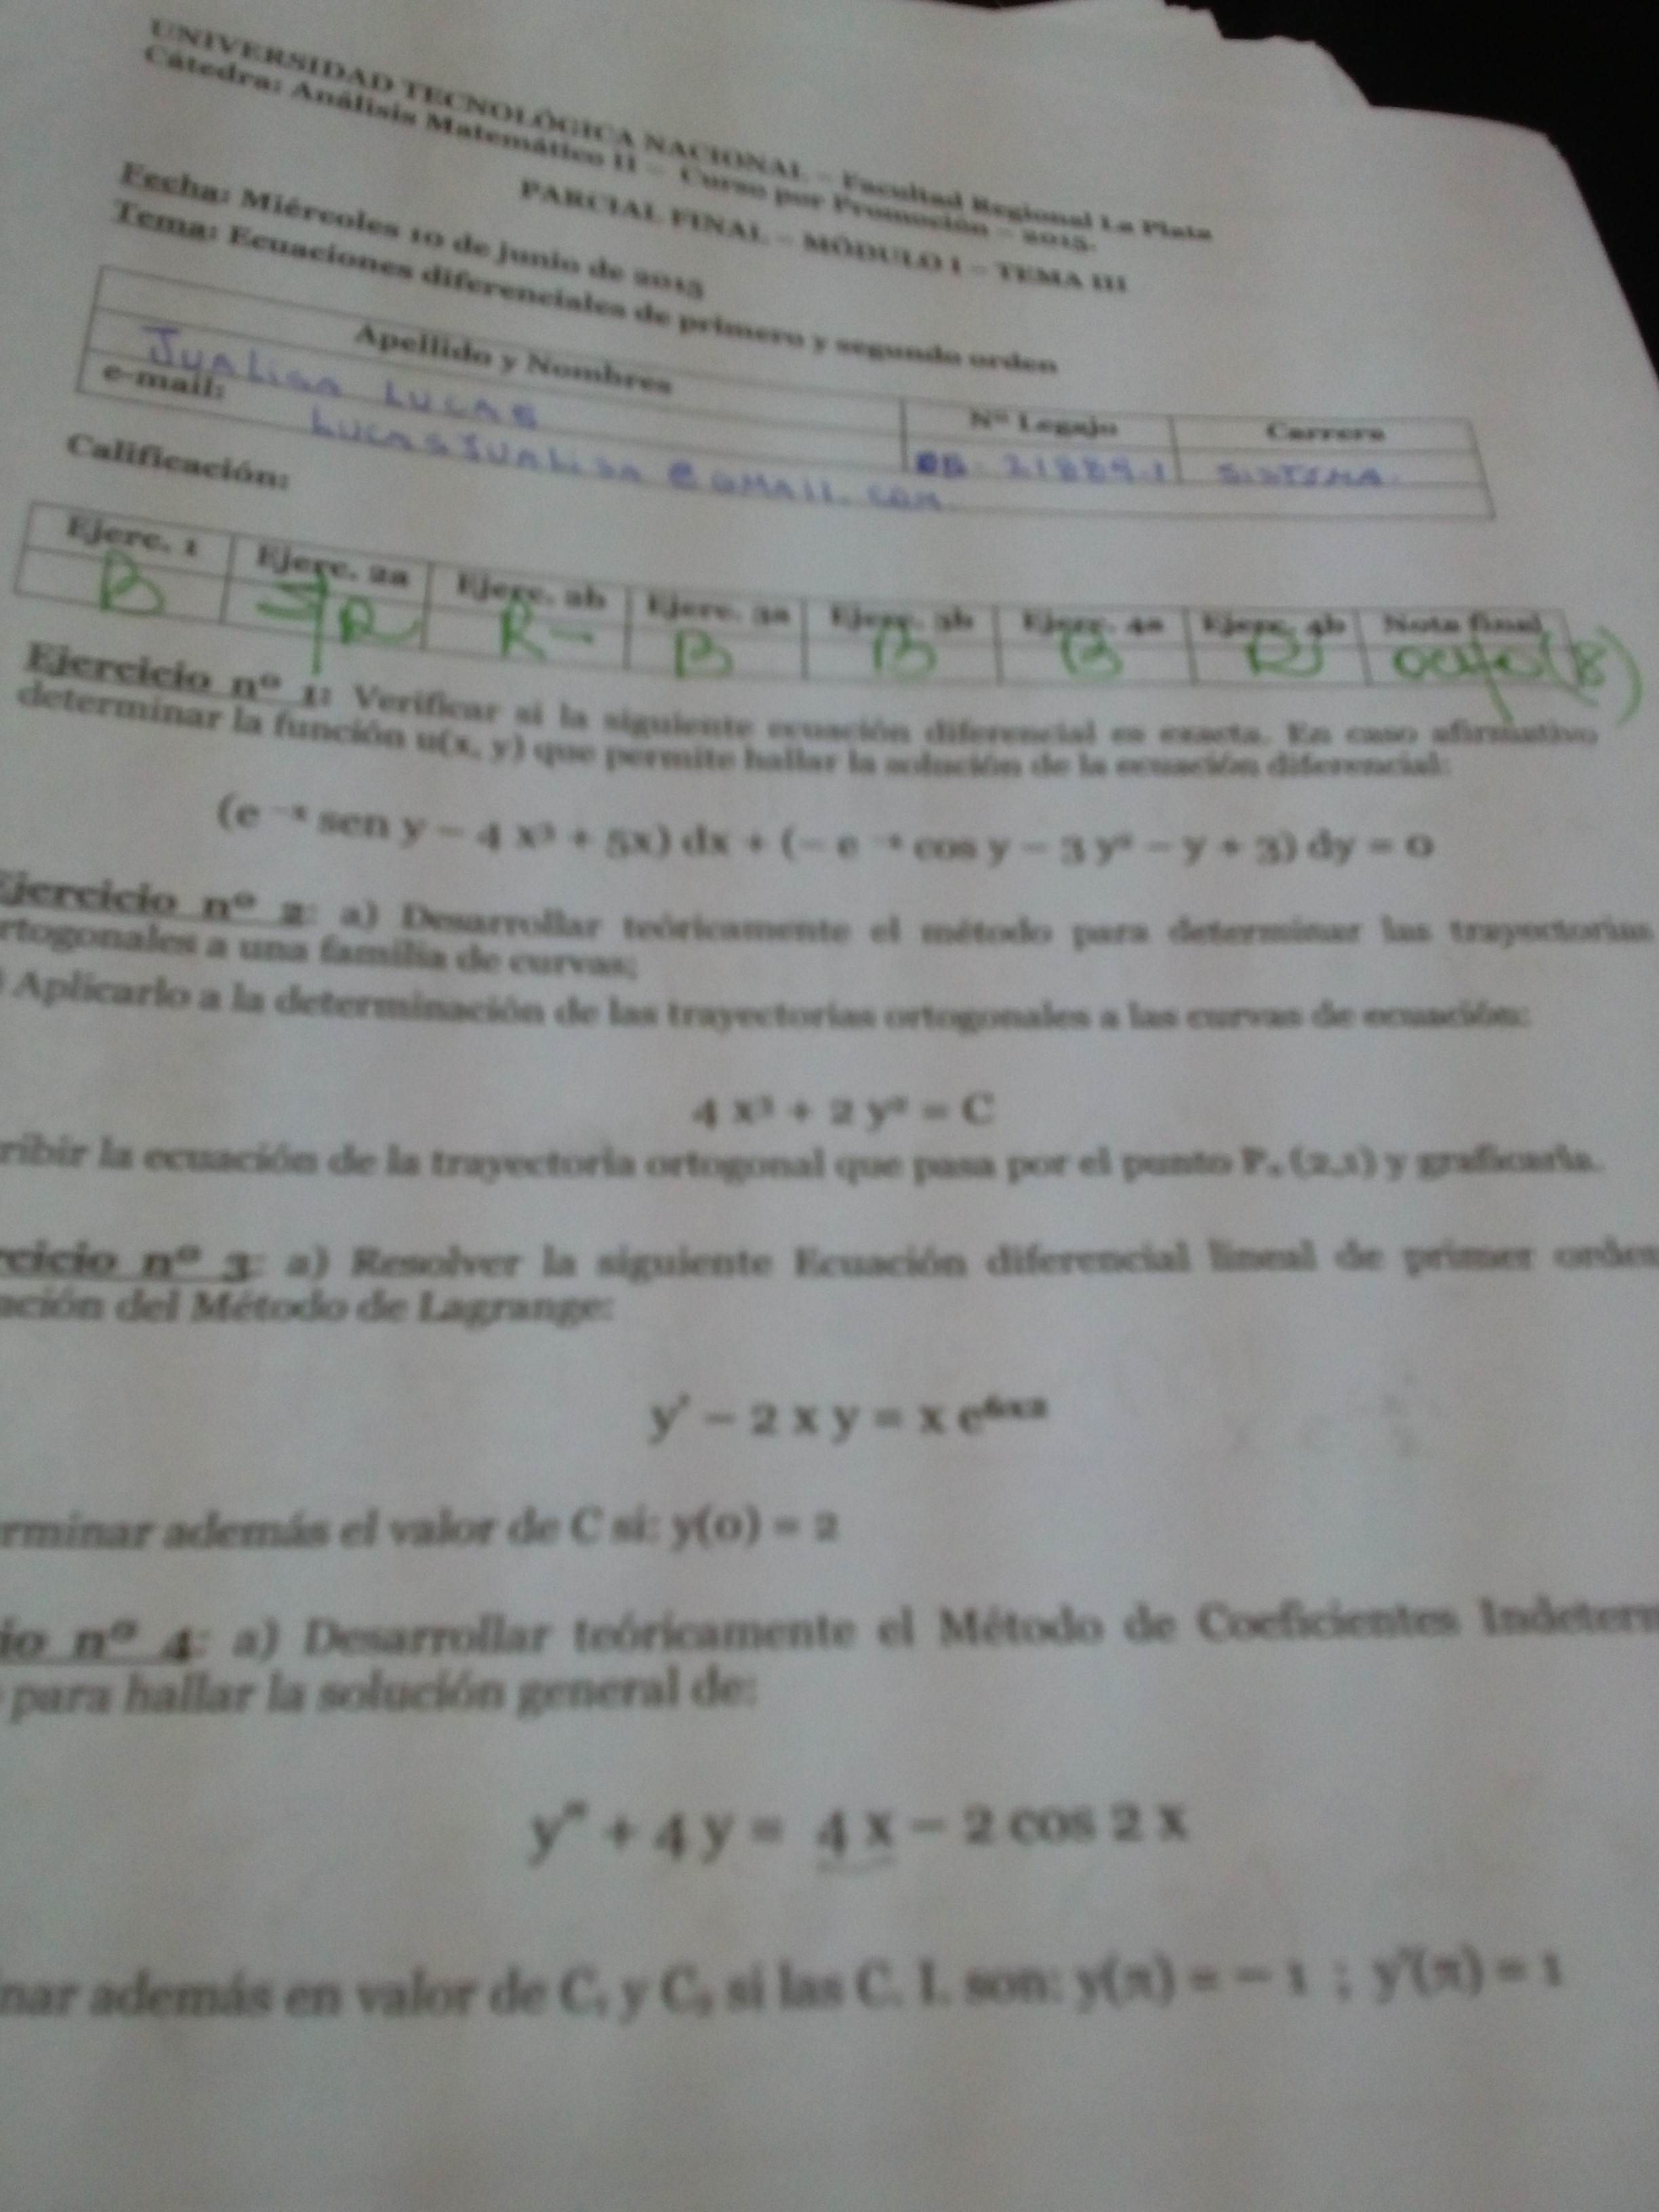 UNIVERSIDAD TECNOLÓGICA NACIONAL – Facultad Regional La Plata
Cátedra: Análisis Matemático II – Curso por Promoción – 2015.
PARCIAL FINAL – MÓDULO I – TEMA III
Fecha: Miércoles 10 de junio de 2015
Tema: Ecuaciones diferenciales de primero y segundo orden
Apellido y Nombres Nº Legajo Carrera
JUALISA LUCAS SISTEMA
e-mail: LUCASJUALISA@GMAIL.COM
Calificación:
Ejerc. 1 Ejerc. 2a Ejerc. 2b Ejerc. 3a Ejerc. 3b Ejerc. 4a Ejerc. 4b Nota final
B R R– B B B R ocho (8)
Ejercicio nº 1: Verificar si la siguiente ecuación diferencial es exacta. En caso afirmativo
determinar la función u(x, y) que permite hallar la solución de la ecuación diferencial:
(e ⁻ˣ sen y – 4 x³ + 5x) dx + (– e ⁻ˣ cos y – 3 y² – y + 3) dy = 0
Ejercicio nº 2: a) Desarrollar teóricamente el método para determinar las trayectorias
rtogonales a una familia de curvas;
) Aplicarlo a la determinación de las trayectorias ortogonales a las curvas de ecuación:
4 x² + 2 y² = C
ribir la ecuación de la trayectoria ortogonal que pasa por el punto P₀ (2,1) y graficarla.
rcicio nº 3: a) Resolver la siguiente Ecuación diferencial lineal de primer orden
ación del Método de Lagrange:
y' – 2 x y = x e⁶ˣ²
rminar además el valor de C si: y(0) = 2
io nº 4: a) Desarrollar teóricamente el Método de Coeficientes Indeterm
para hallar la solución general de:
y" + 4 y = 4 x – 2 cos 2 x
nar además en valor de C₁ y C₂ si las C. I. son: y(π) = – 1 ; y'(π) = 1